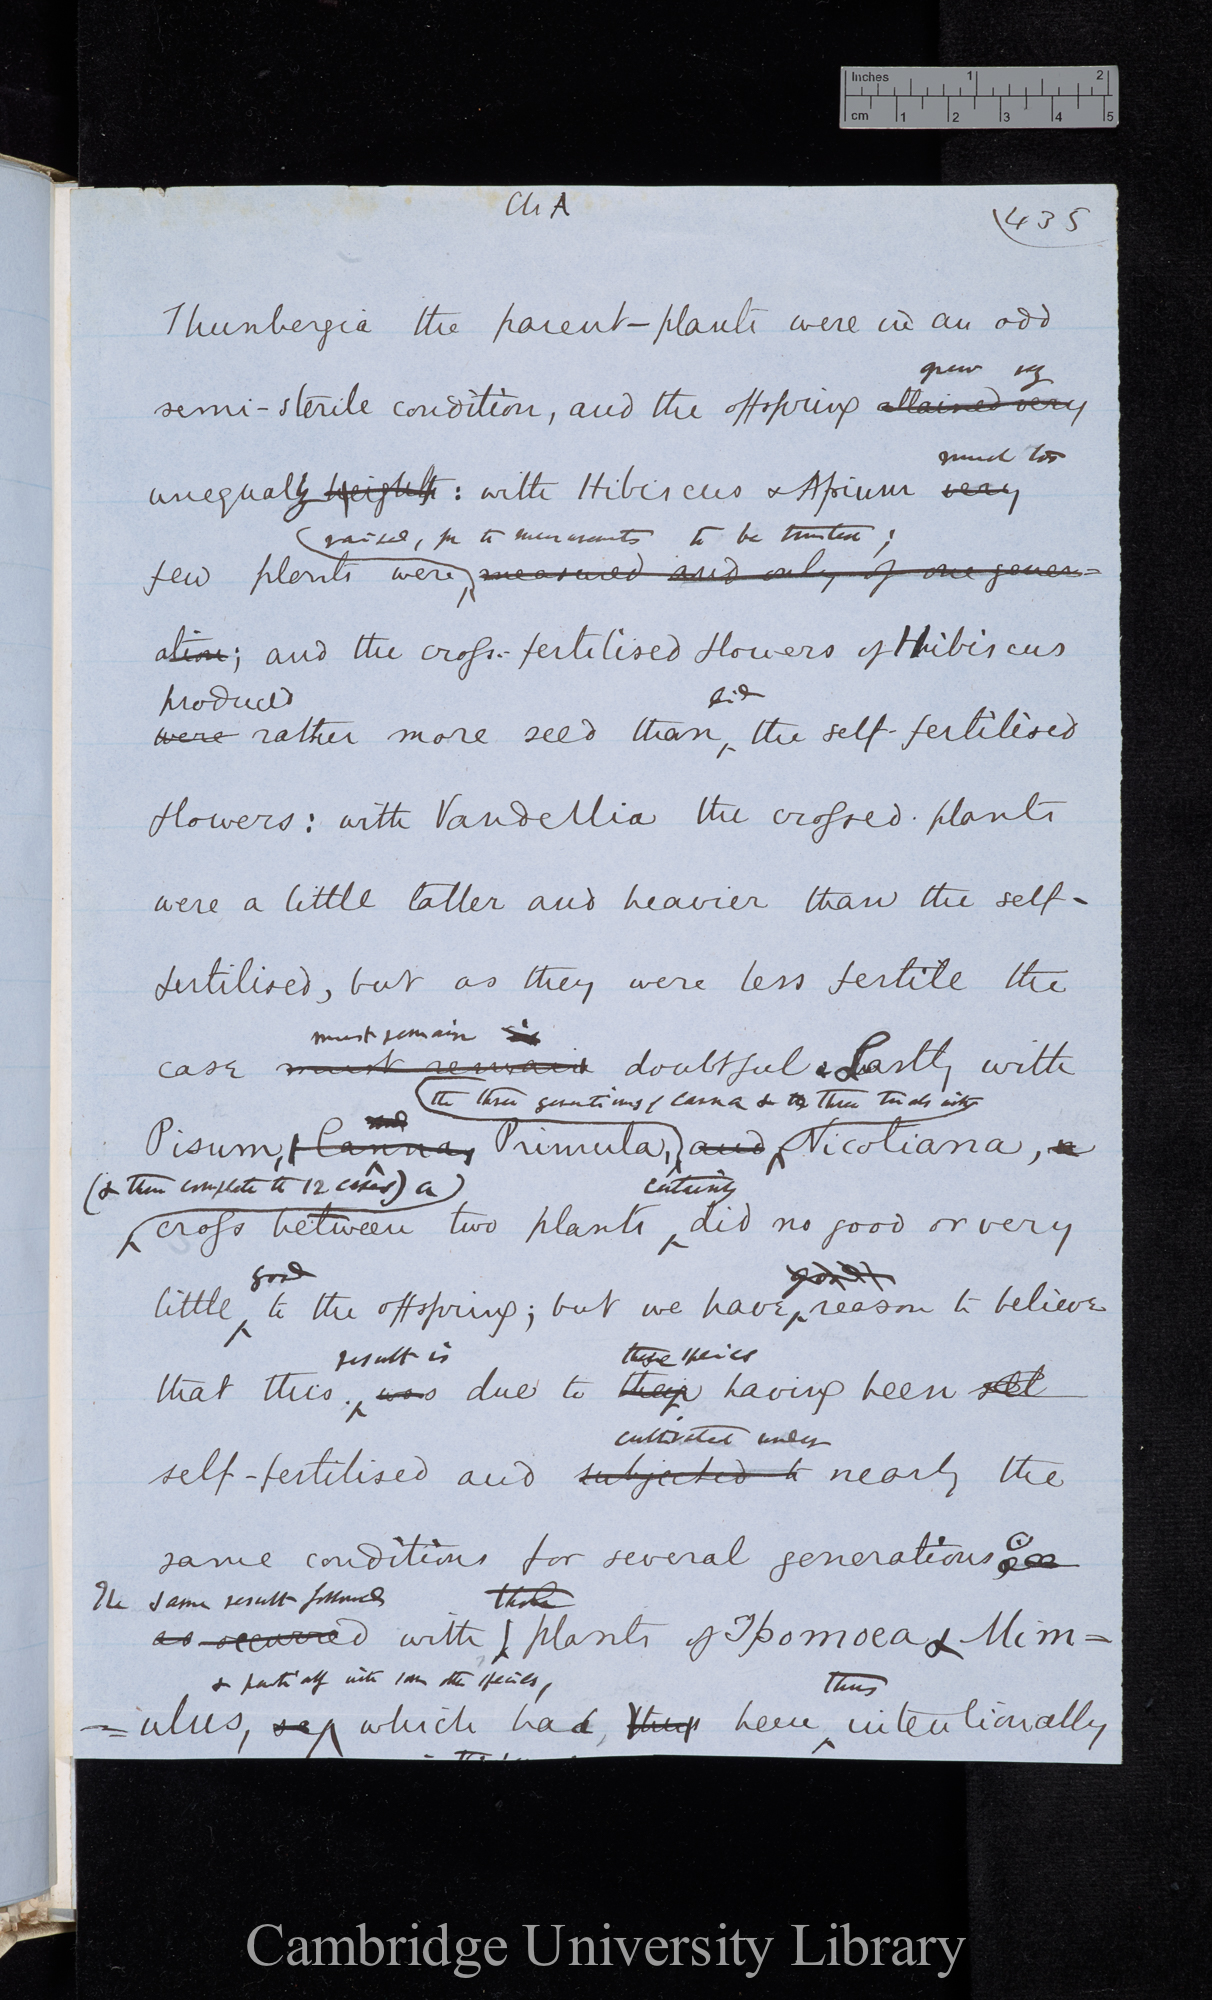 Inches 1 2
cm 1 2 3 4 5
Ch A
435
Thunbergia the parent-plants were in an odd
grew very
semi-sterile condition, and the offspring attained very
much too
unequally heights: with Hibiscus & Apium very
raised, or to measurements to be trusted;
few plants were measured and only of one gener-
ation; and the cross-fertilised flowers of Hibiscus
produced did
were rather more seed than the self-fertilised
flowers: with Vandellia the crossed plants
were a little taller and heavier than the self-
fertilised, but as they were less fertile the
must remain is
case must remain doubtful. Lastly with
the three generations of Canna & the three trials with
and
Pisum, Canna, Primula, and Nicotiana, a
(& then complete the 12 cases) a certainly
cross between two plants did no good or very
good
little to the offspring; but we have reason to believe
result is these species
that this was due to their having been
cultivated under
self-fertilised and subjected to nearly the
same conditions for several generations
The same result followed those
as occurred with plants of Ipomoea & Mim=
& partially with some other species, thus
=ulus, which had, they been intentionally
Cambridge University Library